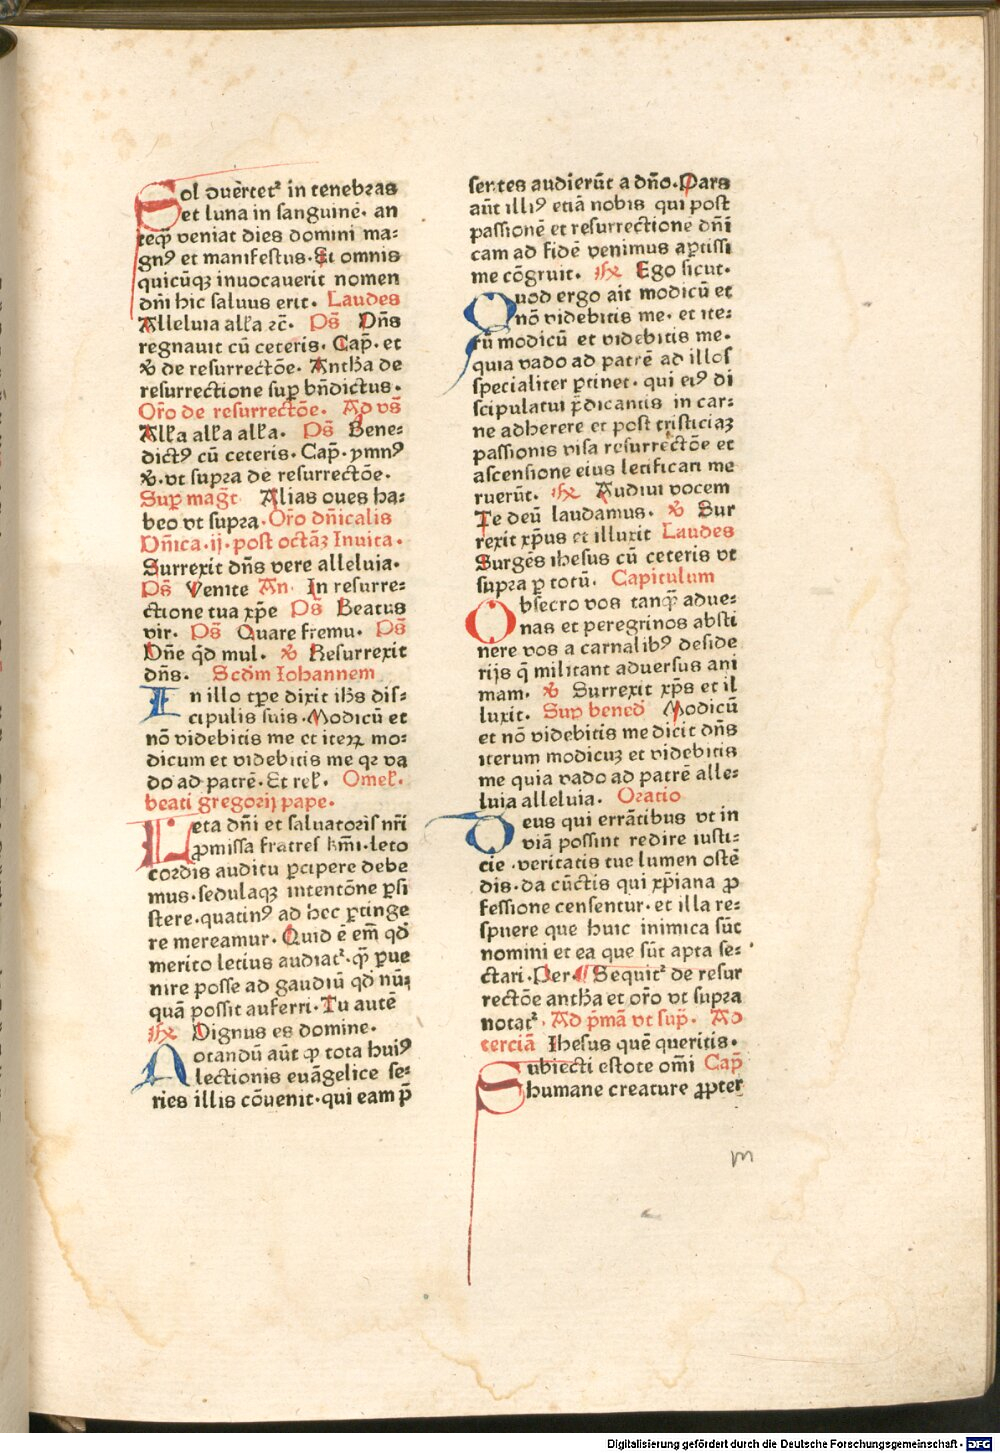 Sol ꝯuertetᷣ in tenebras
et luna in sanguinē· an
teq̄ꝫ veniat dies domini ma⸗
gnꝰ et manifestus· Et omnis
quicūqꝫ inuocauerit nomen
dn̄i hic saluus erit· Laudes
Alleluia alľa ꝛc̄· Ps̄ Dn̄s
regnauit cū ceteris· Cap̄· et
℣ de resurrectōe· Antħa de
resurrectione suꝑ bn̄dictus·
Orō de resurrectōe· Ad vs̄
Alľa alľa alľa· Ps̄ Bene⸗
dictꝰ cū ceteris· Cap̄· ymnꝰ
℣· vt supra de resurrectōe·
Suꝑ mag̃t Alias oues ha⸗
beo vt supra· Orō dn̄icalis
Dn̄ica·ij·post octāꝫ Inuita·
Surrexit dn̄s vere alleluia·
Ps̄ Venite An· In resurre⸗
ctione tua xp̄e Ps̄ Beatus
vir· Ps̄ Quare fremu· Ps̄
Dn̄e qd̄ mul· ℣ Resurrexit
dn̄s· Scd̄m Iohannem
In illo tꝑe dixit ih̄s dis⸗
cipulis suis· Modicū et
nō videbitis me et iteꝝ mo⸗
dicum et videbitis me qꝛ va
do ad patrē· Et rel̓· Omel̓·
beati gregorij pape·
Leta dn̄i et saluatoris nr̄i
ꝓmissa fratres km̄i· leto
cordis auditu ꝑcipere debe
mus· sedulaqꝫ intentōne ꝑsi
stere· quatinꝰ ad hec ꝑtinge
re mereamur· Quid ē em̄ qd̄
merito letius audiatᷣ· q̄ꝫ ꝑue
nire posse ad gaudiū qd̄ nūꝗ
quā possit auferri· Tu autē
℟ Dignus es domine·
Notandū aūt ꝙ tota huiꝰ
lectionis euāgelice se⸗
ries illis cōuenit· qui eam p̄
sentes audierūt a dn̄o· Pars
aūt illiꝰ etiā nobis qui post
passionē et resurrectione dn̄i
cam ad fidē venimus aꝑtissi
me cōgruit· ℟ Ego sicut·
Quod ergo ait modicū et
nō videbitis me· et ite⸗
rū modicū et videbitis me·
quia vado ad patrē ad illos
specialiter ꝑtinet· qui eiꝰ di
scipulatui p̄dicantis in car⸗
ne adherere et post tristiciaꝫ
passionis visa resurrectōe et
ascensione eius letificari me
ruerūt· ℟ Audiui vocem
Te deū laudamus· ℣ Sur
rexit xp̄us et illuxit Laudes
Surgēs ihesus cū ceteris vt
supra ꝑ totū· Capitulum
Obsecro vos tanq̄ꝫ adue⸗
nas et peregrinos absti
nere vos a carnalibꝰ deside
rijs q̄ militant aduersus ani
mam· ℣ Surrexit xp̄s et il
luxit· Suꝑ bened̓ Modicū
et nō videbitis me dicit dn̄s
iterum modicuꝫ et videbitis
me quia vado ad patrē alle⸗
luia alleluia· Oratio
Deus qui errātibus vt in
viā possint redire iusti⸗
cie · veritatis tue lumen ostē
dis· da cūctis qui xp̄iana ꝓ
fessione censentur· et illa re⸗
spuere que huic inimica sūt
nomini et ea que sūt apta se⸗
ctari· Per· ¶ Sequitᷣ de resur
rectōe antħa et orō vt supra
notatᷣ· Ad p̄mā vt sup̄· Ad
terciā Ihesus quē queritis·
Subiecti estote om̄i Cap̄
humane creature ꝓpter
m
Digitalisierung gefördert durch die Deutsche Forschungsgemeinschaft - DFG